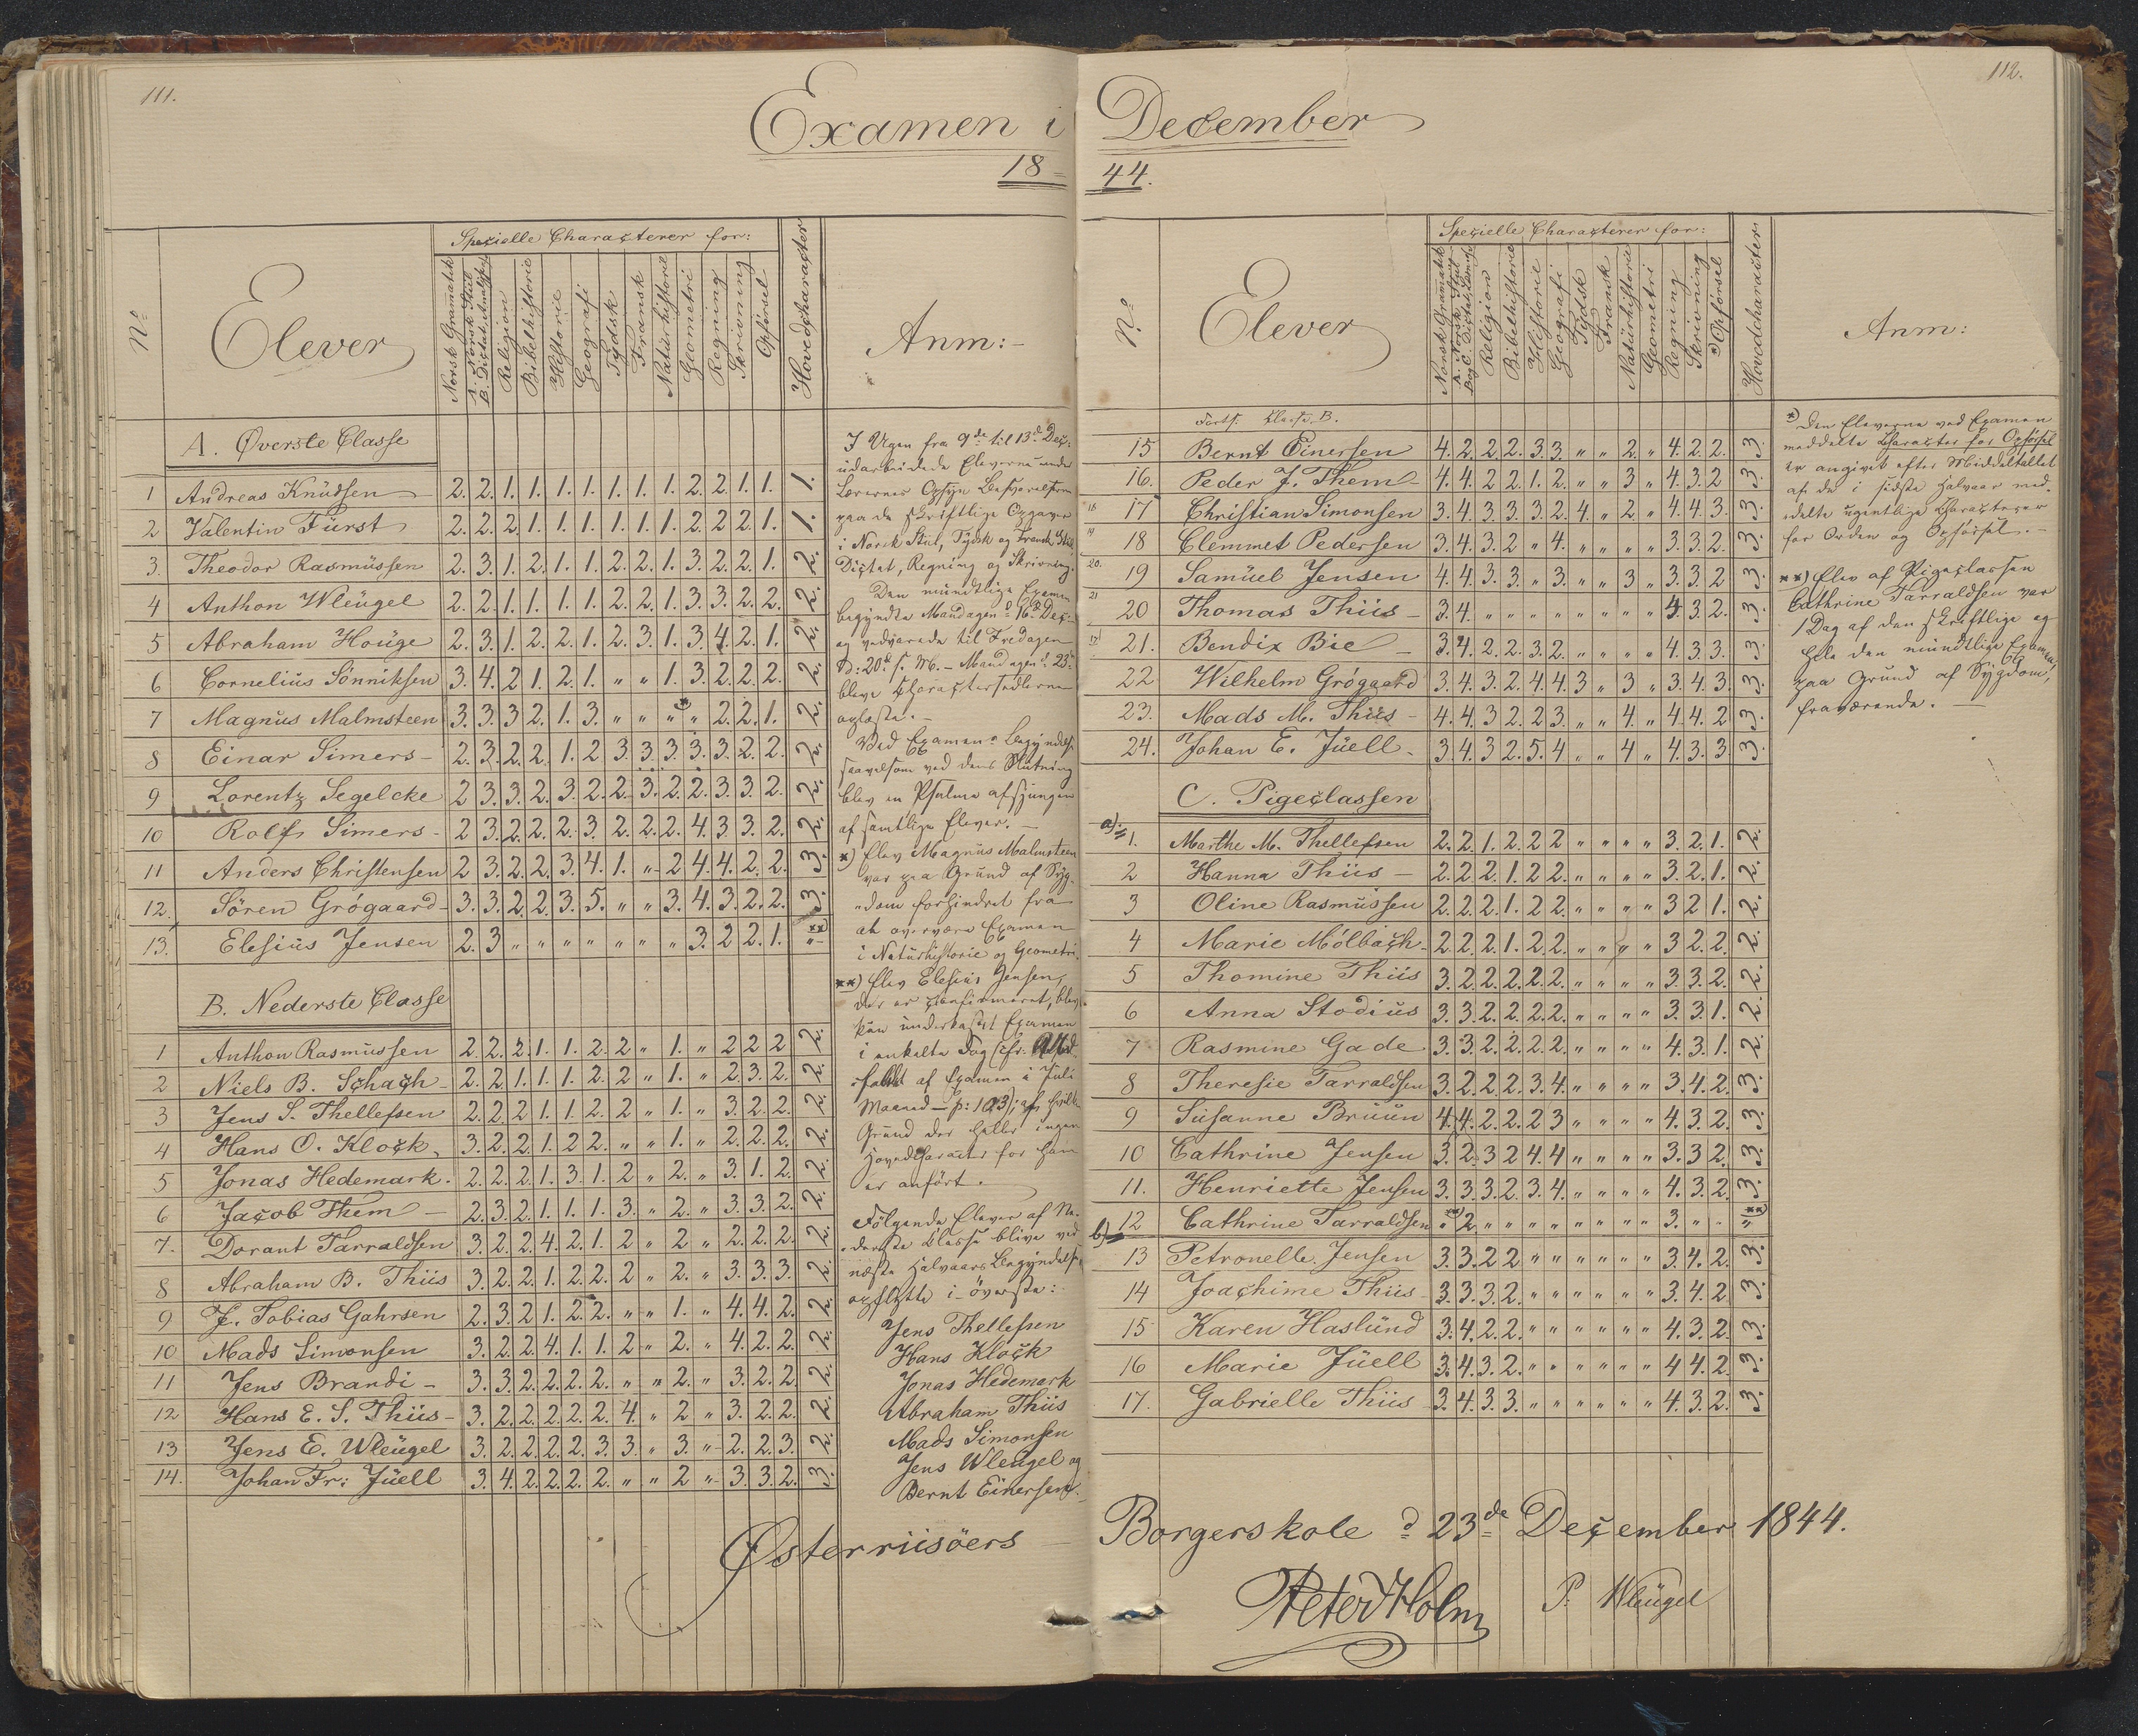 111.
Examen i
18 =
Specielle Characterer for:
No
Elever
Norsk Gramatik
A. Norsk Stiil
B. Dictat, Analyse
Religion
Bibelhistorie
Historie
Geografi
Tydsk
Fransk
Naturhistorie
Geometri
Regning
Skrivning
Opførsel
Hovedcharacter
Anm:-
A. Øverste Classe
1 Andreas Knüdsen 2. 2. 1. 1. 1. 1. 1. 1. 1. 2. 2. 1. 1. 1.
2 Valentin Fürst 2. 2. 2. 1. 1. 1. 1. 1. 1. 2. 2. 2. 1. 1.
3. Theodor Rasmüssen 2. 3. 1. 2. 1. 1. 2. 2. 1. 3. 2. 2. 1. 2.
4 Anthon Wleügel 2. 2. 1. 1. 1. 1. 2. 2. 1. 3. 3. 2. 2. 2.
5 Abraham Houge 2. 3. 1. 2. 2. 1. 2. 3. 1. 3. 4. 2. 1. 2.
6 Cornelius Sønniksen 3. 4. 2 1. 2. 1. " " 1. 3. 2. 2. 2. 2.
7 Magnus Malmsteen 3. 3. 3 2. 1. 3. " " " *" 2. 2. 1. 2.
8 Einar Simers - 2. 3. 2. 2. 1. 2 3. 3. 3. 3. 3. 2. 2. 2.
9 Lorentz Segelcke 2 3. 3. 2. 3. 2. 2. 3. 2. 2. 3. 3. 2. 2.
10 Rolf Simers - 2 3. 2. 2. 2. 3. 2. 2. 2. 4. 3 3. 2. 2.
11 Anders Christensen 2 3. 2. 2. 3. 4. 1. " 2 4. 4. 2. 2. 3.
12. Søren Grögaard - 3. 3. 2. 2. 3. 5. " " 3. 4. 3. 2. 2. 3.
13. Elesius Jensen 2. 3 " " " " " " " 3. 2 2. 1. **)
B. Nederste Classe
1 Anthon Rasmüssen 2. 2. 2. 1. 1. 2. 2 " 1. " 2 2 2 2.
2 Niels B. Schach - 2. 2. 1. 1. 1. 2. 2 " 1. " 2. 3. 2. 2.
3 Jens S. Thellefsen 2. 2. 2 1. 1. 2. 2 " 1. " 3. 2. 2. 2.
4 Hans O. Klock. 3. 2. 2. 1. 2 2. " " 1. " 2. 2. 2. 2.
5 Jonas Hedemark. 2. 2. 2. 1. 3. 1. 2 " 2. " 3. 1. 2. 2.
6 Jacob Them - 2. 3. 2. 1. 1. 1. 3. " 2. " 3. 3. 2. 2.
7. Dorant Tarraldsen 3. 2. 2. 4. 2. 1. 2 " 2 " 2. 2. 2. 2.
8 Abraham B. Thiis 3. 2. 2. 1. 2. 2. 2 " 2. " 3. 3. 3. 2.
9 J. Tobias Gahrsen 2. 3. 2. 1. 2. 2. " " 1. " 4. 4. 2. 2.
10 Mads Simonsen 3. 2. 2. 4. 1. 1. 2 " 2. " 4. 2. 2. 2.
11 Jens Brandi - 3. 3. 2. 2. 2. 2. " " 2. " 3. 2. 2. 2.
12 Hans E. S. Thiis - 3. 2. 2. 2. 2. 2. 4. " 2 " 3. 2. 2. 2.
13 Jens E. Wleügel 3. 2. 2. 2. 2. 3. 3. " 3. " 2. 2. 3. 2.
14. Johan Fr: Jüell 3. 4. 2. 2. 2. 2. " " 2 " 3. 3. 2. 3.
I Ugen fra 9de til 13de Dec:
udarbeidede Eleverne under
Lærernes Opsyn Besvarelserne
paa de skriftlige Opgaver
i Norsk Stiil, Tydsk og Fransk Stiil,
Dictat, Regning og Skrivning.
Den mundtlige Examen
begyndte Mandagen d. 16de Dec:
og vedvarede til Fredagen
d: 20de s. M. - Mandagen d. 23de
bleve Charactersedlerne
oplæste. -
Ved Examens Begyndelse
saavelsom ved dens Slutning
blev en Psalme afsjungen
af samtlige Elever. -
*) Elev Magnus Malmsteen
var paa Grund af Syg-
dom forhindret fra
at overvære Examen
i Naturhistorie og Geometri.
**) Elev Elesius Jensen,
der er confirmeret, blev
kun underkastet Examen
i enkelte Fag
af Examen i Juli
Maaned - p: 103); af hvilken
Grund der heller ingen
Hovedcharacter for ham
er anført.
Følgende Elever af Ne-
derste Classe blive ved
næste Halvaars Begyndelse
opflytte i øverste:
Jens Thellefsen
Hans Klock
Jonas Hedemark
Abraham Thiis
Mads Simonsen
Jens Wleugel og
Bernt Einersen.
Østerriisöers
112.
December
44.
Specielle Characterer for:
No
Elever
Norsk Gramatik
A. Norsk Stiil
B og C. Dictat, Læsning
Religion
Bibelhistorie
Historie
Geografi
Tydsk
Fransk
Naturhistorie
Geometri
Regning
Skrivning
*) Opførsel
Hovedcharacter
Anm:
Forts. Classe B.
15 Bernt Einersen 4. 2. 2. 2. 3. 3. " " 2. " 4. 2. 2. 3.
16. Peder J. Them 4. 4. 2 2. 1. 2. " " 3 " 4. 3. 2 3.
18 17 Christian Simonsen 3. 4. 3. 3. 3. 2. 4. " 2. " 4. 4. 3. 3.
19 18 Clemmet Pedersen 3. 4. 3. 2 " 4. " " " " 3. 3. 2. 3.
20. 19 Samüel Jensen 4. 4. 3. 3. " 3. " " 3 " 3. 3. 2 3.
21 20 Thomas Thiis - 3. 4 " " " " " " " " 4. 3. 2. 3.
17 21. Bendix Bie - 3. 4. 2. 2. 3. 2. " " " " 4. 3. 3. 3.
22 Wilhelm Grögaard 3. 4. 3. 2. 4. 4. 3 " 3 " 3. 4. 3. 3.
23. Mads M. Thiis - 4. 4. 3 2. 2 3. " " 4. " 4. 4. 2 3.
24. Johan E. Jüell. 3. 4. 3 2. 5. 4. " " 4 " 4. 3. 3. 3.
C. Pigeclassen
a) 1. Marthe M. Thellefsen 2. 2. 1. 2. 2 2 " " " " 3. 2. 1. 2.
2 Hanna Thiis - 2. 2. 2. 1. 2 2. " " " " 3. 2. 1. 2.
3 Oline Rasmüssen 2. 2. 2. 1. 2 2. " " " " 3 2 1. 2.
4 Marie Mölbach - 2. 2. 2. 1. 2. 2. " " " " 3 2. 2. 2.
5 Thomine Thiis 3. 2. 2. 2. 2. 2. " " " " 3. 3. 2. 2.
6 Anna Stodius 3. 3. 2. 2. 2. 2. " " " " 3. 3. 1. 2.
7 Rasmine Gade 3. 3. 2. 2. 2. 2. " " " " 4. 3. 1. 2.
8 Theresie Tarraldsen 3. 2. 2. 2. 3. 4. " " " " 3. 4. 2. 3.
9 Susanne Bruun 4. 4. 2. 2. 2 3 " " " " 4. 3. 2. 3.
10 Cathrine Jensen 3. 2. 3 2 4. 4 " " " " 3. 3 2. 3.
11. Henriette Jensen 3. 3. 3. 2. 3. 4. " " " " 4. 3. 2. 3.
b) 12 Cathrine Tarraldsen **) " 2. " " " " " " " " 3. " " **)
13 Petronelle Jensen 3. 3. 2 2 " " " " " " 3. 4. 2. 3.
14 Joachime Thiis 3. 3. 3. 2. " " " " " " 3. 4. 2 3.
15 Karen Haslünd 3. 4. 2. 2. " " " " " " 4. 3. 2. 3.
16 Marie Jüell 3. 4. 3. 2. " " " " " " 4 4. 2. 3.
17. Gabrielle Thiis 3. 4. 3. 3. " " " " " " 4. 3. 2. 3.
*) Den Eleverne ved Examen
meddelte Character for Opførsel
er angivet efter Middeltallet
af de i sidste Halvaar med-
delte ugentlige Characterer
for Orden og Opførsel. -
**) Elev af Pigeclassen
Cathrine Tarraldsen var
1 Dag af den skriftlige og
hele den mundtlige Examen,
paa Grund af Sygdom,
fraværende. -
Borgerskole d. 23de December 1844.
Peter Holm P. Wleügel